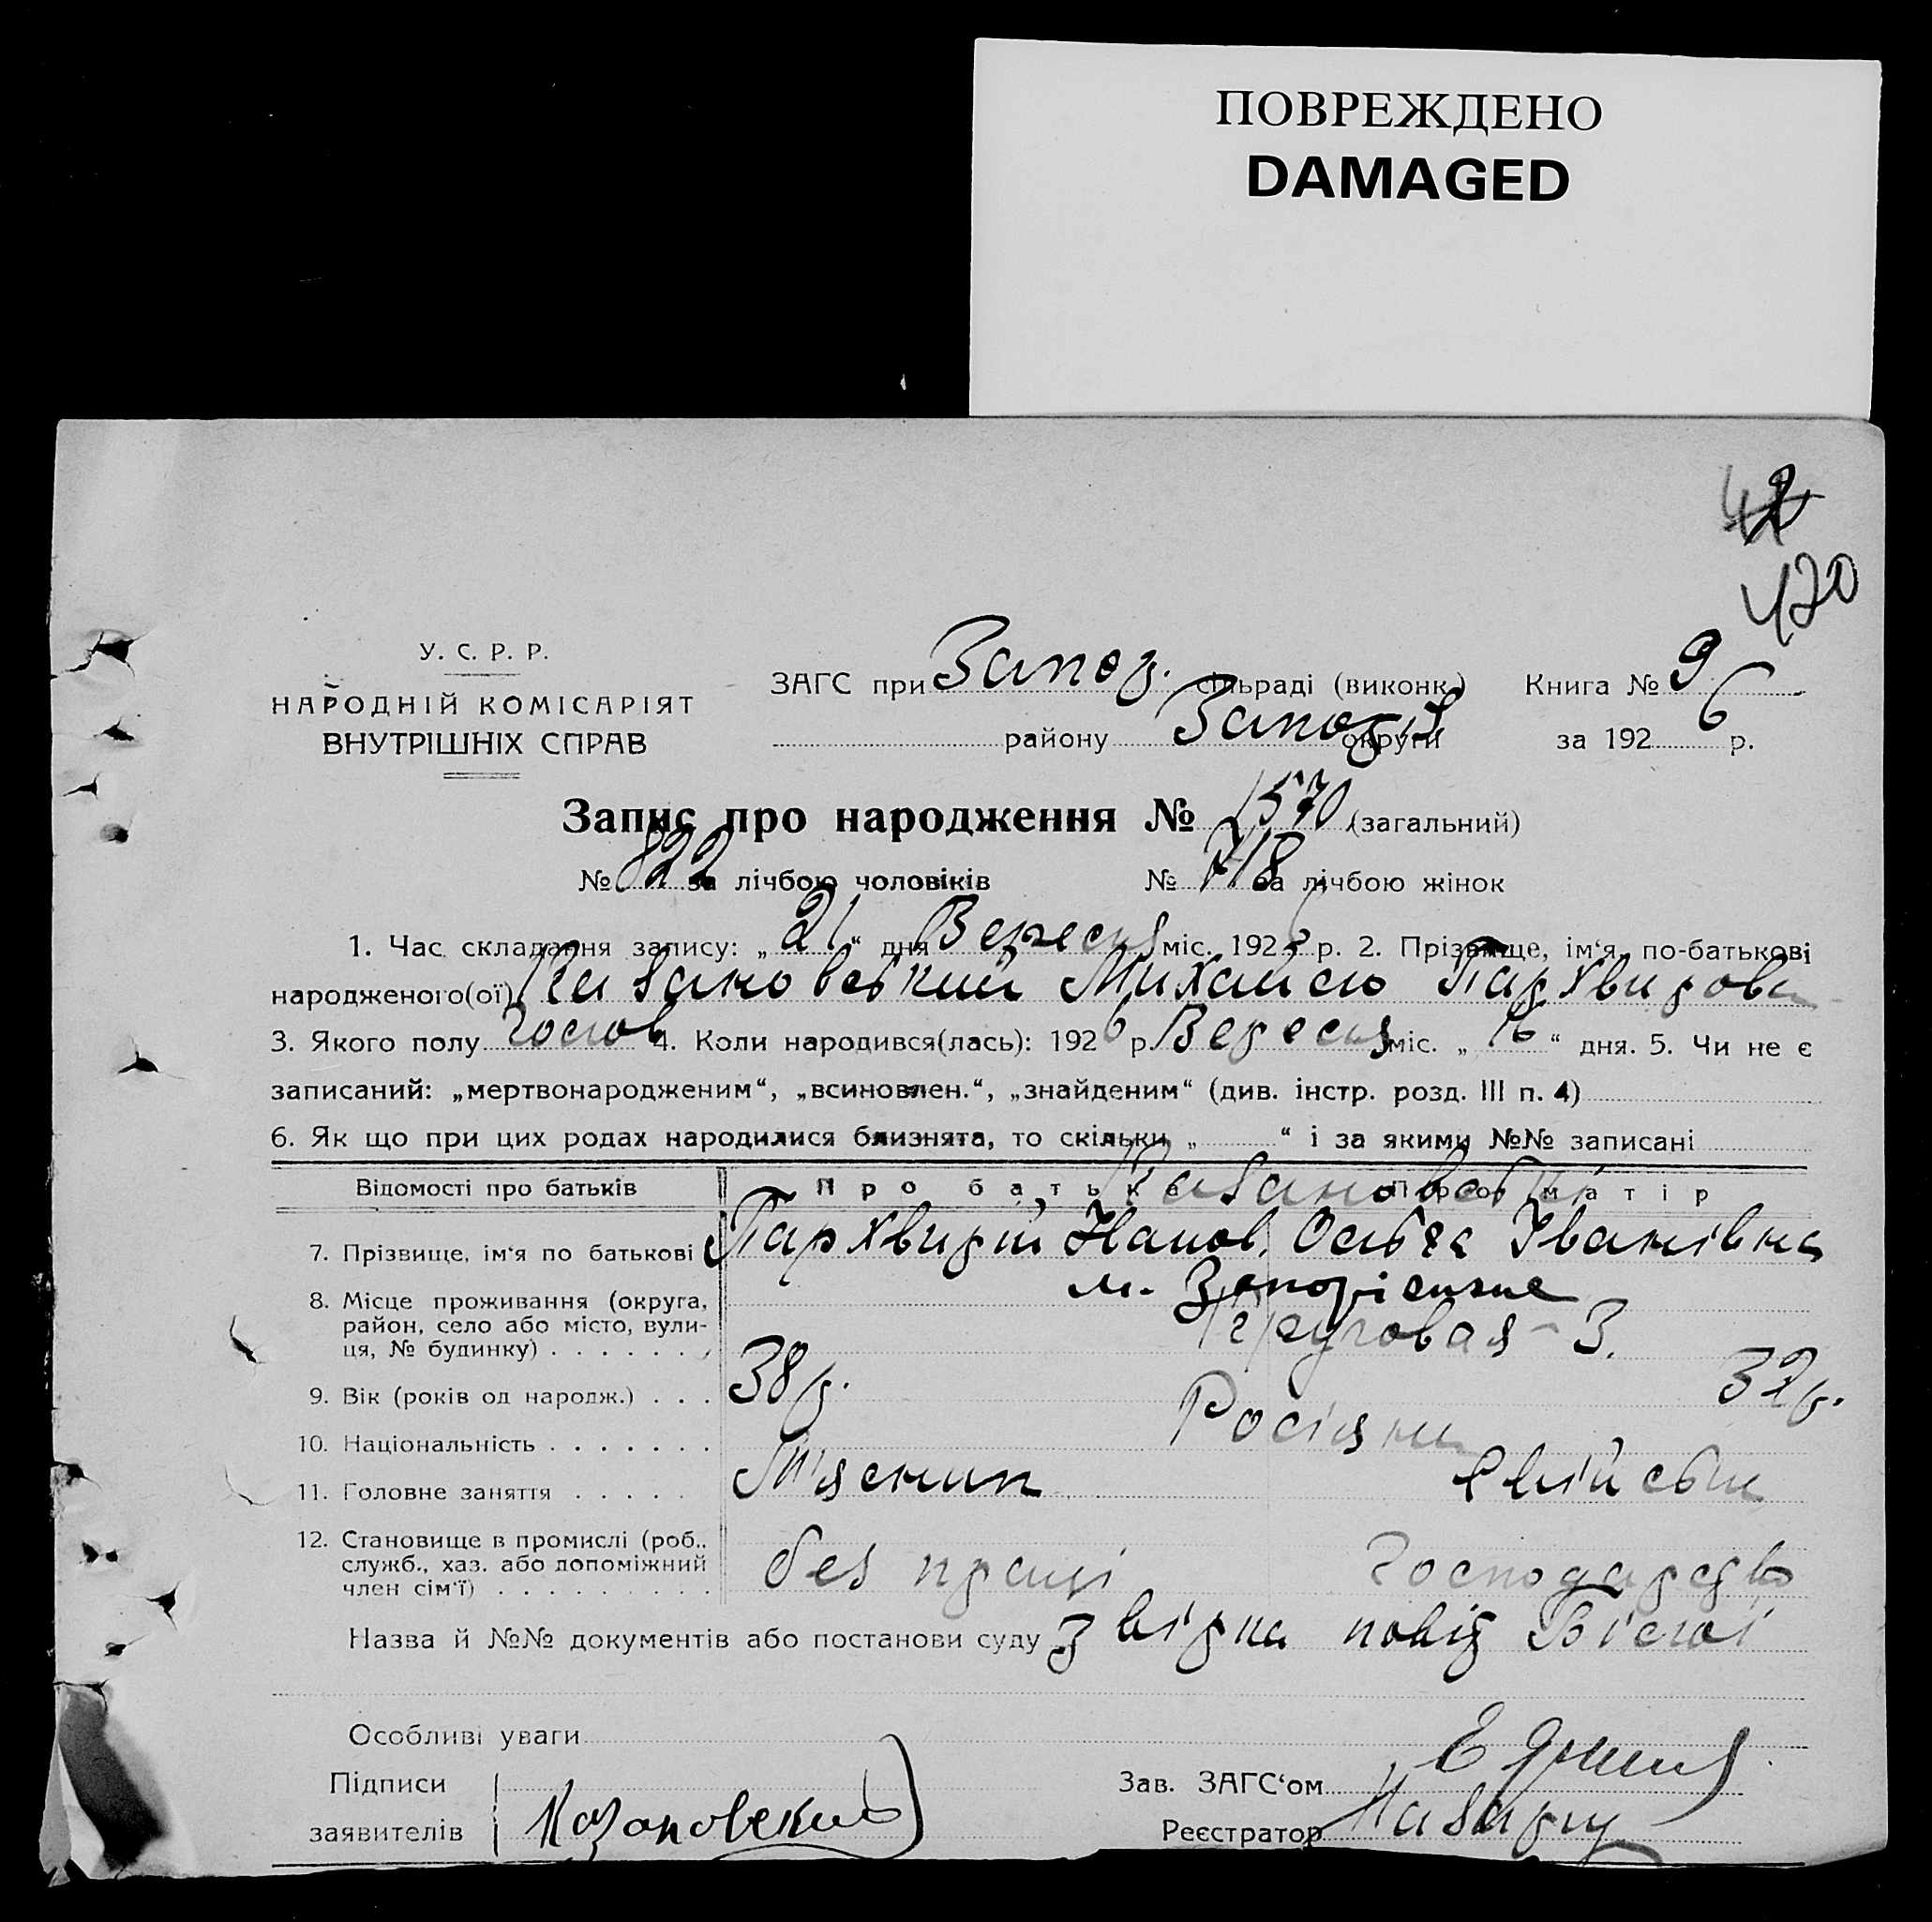 ПОВРЕЖДЕНО
DAMAGED
420
У. С. Р. Р.
НАРОДНІЙ КОМІСАРІЯТ
ВНУТРІШНІХ СПРАВ
ЗАГС при Запор. сільраді (виконк.) Книга № 9
району Запоріз округи за 1926 р.
Запис про народження № 1570 (загальний)
№ 822 за лічбою чоловіків № 718 за лічбою жінок
1. Час складання запису: „21“ дня Вересня міс. 1926 р. 2. Прізвище, ім‘я, по-батькові
народженого(ої) Казановський Михайло Пархвирова
3. Якого полу чолов 4. Коли народився(лась): 1926 р. Вересня міс. „16“ дня. 5. Чи не є
записаний: „мертвонародженим“, „всиновлен.“, „знайденим“ (див. інстр. розд. III п. 4)
6. Як що при цих родах народилися близнята, то скільки „ “ і за якими №№ записані
Відомості про батьків Про батька Про матір
Казановські
7. Прізвище, ім‘я по батькові Пархвирій Іванов. Ольга Іванівна
8. Місце проживання (округа, район, село або місто, вулиця, № будинку) м. Запоріжжє
3.
9. Вік (років од народж.) 38 р. 32 р.
10. Національність Росіяни
11. Головне заняття М'ясник
12. Становище в промислі (роб., служб., хаз. або допоміжний член сім'ї) без праці
Назва й №№ документів або постанови суду
Особливі уваги
Підписи
заявителів Казановский
Зав. ЗАГС‘ом
Реєстратор